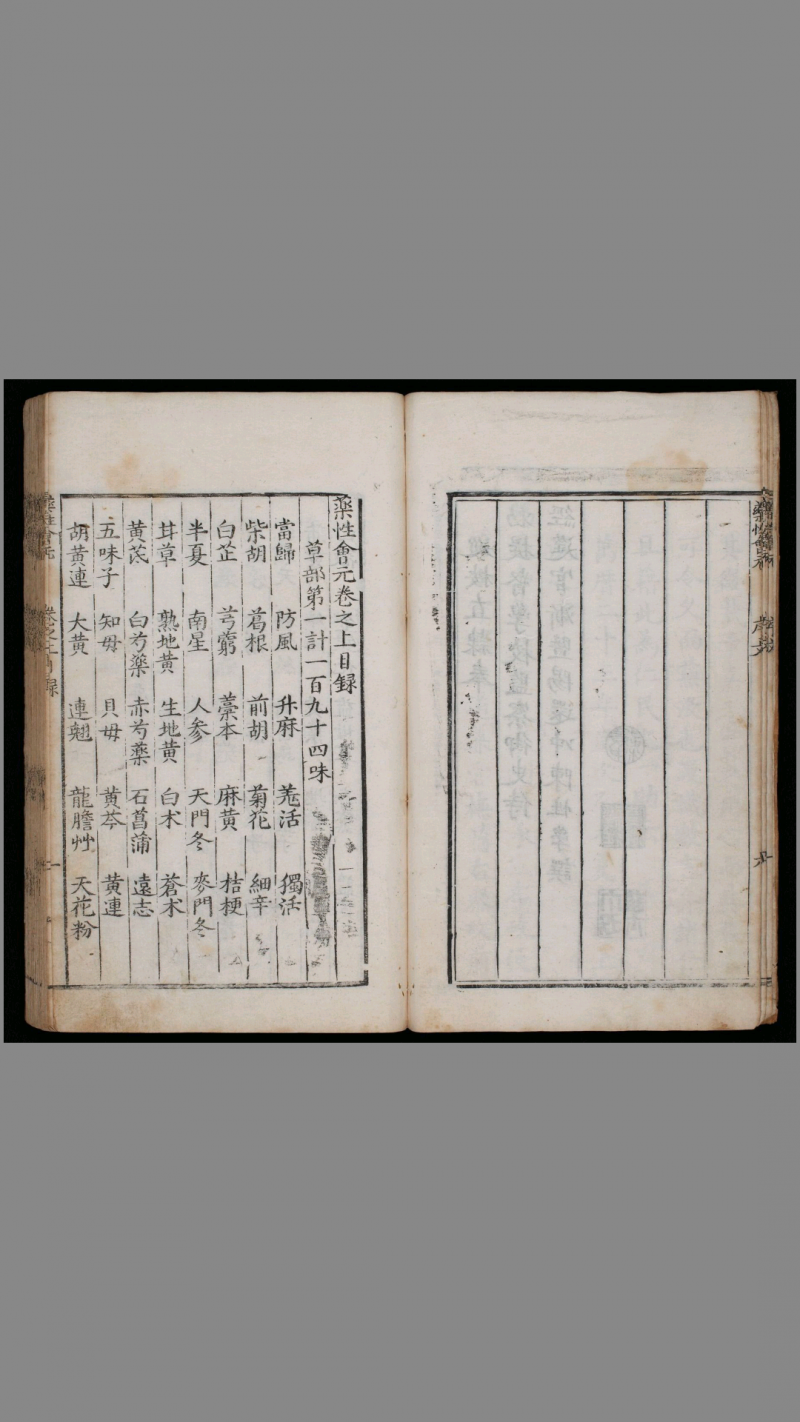 藥性會元卷之上目録
草部第一計一百九十四味
當歸 防風 升麻 羗活 獨活
柴胡 葛根 前胡 菊花 細辛
白芷 芎藭 藁本 麻黄 桔梗
半夏 南星 人参 天門冬 麥門冬
甘草 熟地黄 生地黄 白术 蒼术
黄芪 白芍藥 赤芍藥 石菖蒲 遠志
五味子 知母 貝母 黄芩 黄連
胡黄連 大黄 連翹 龍膽艸 天花粉